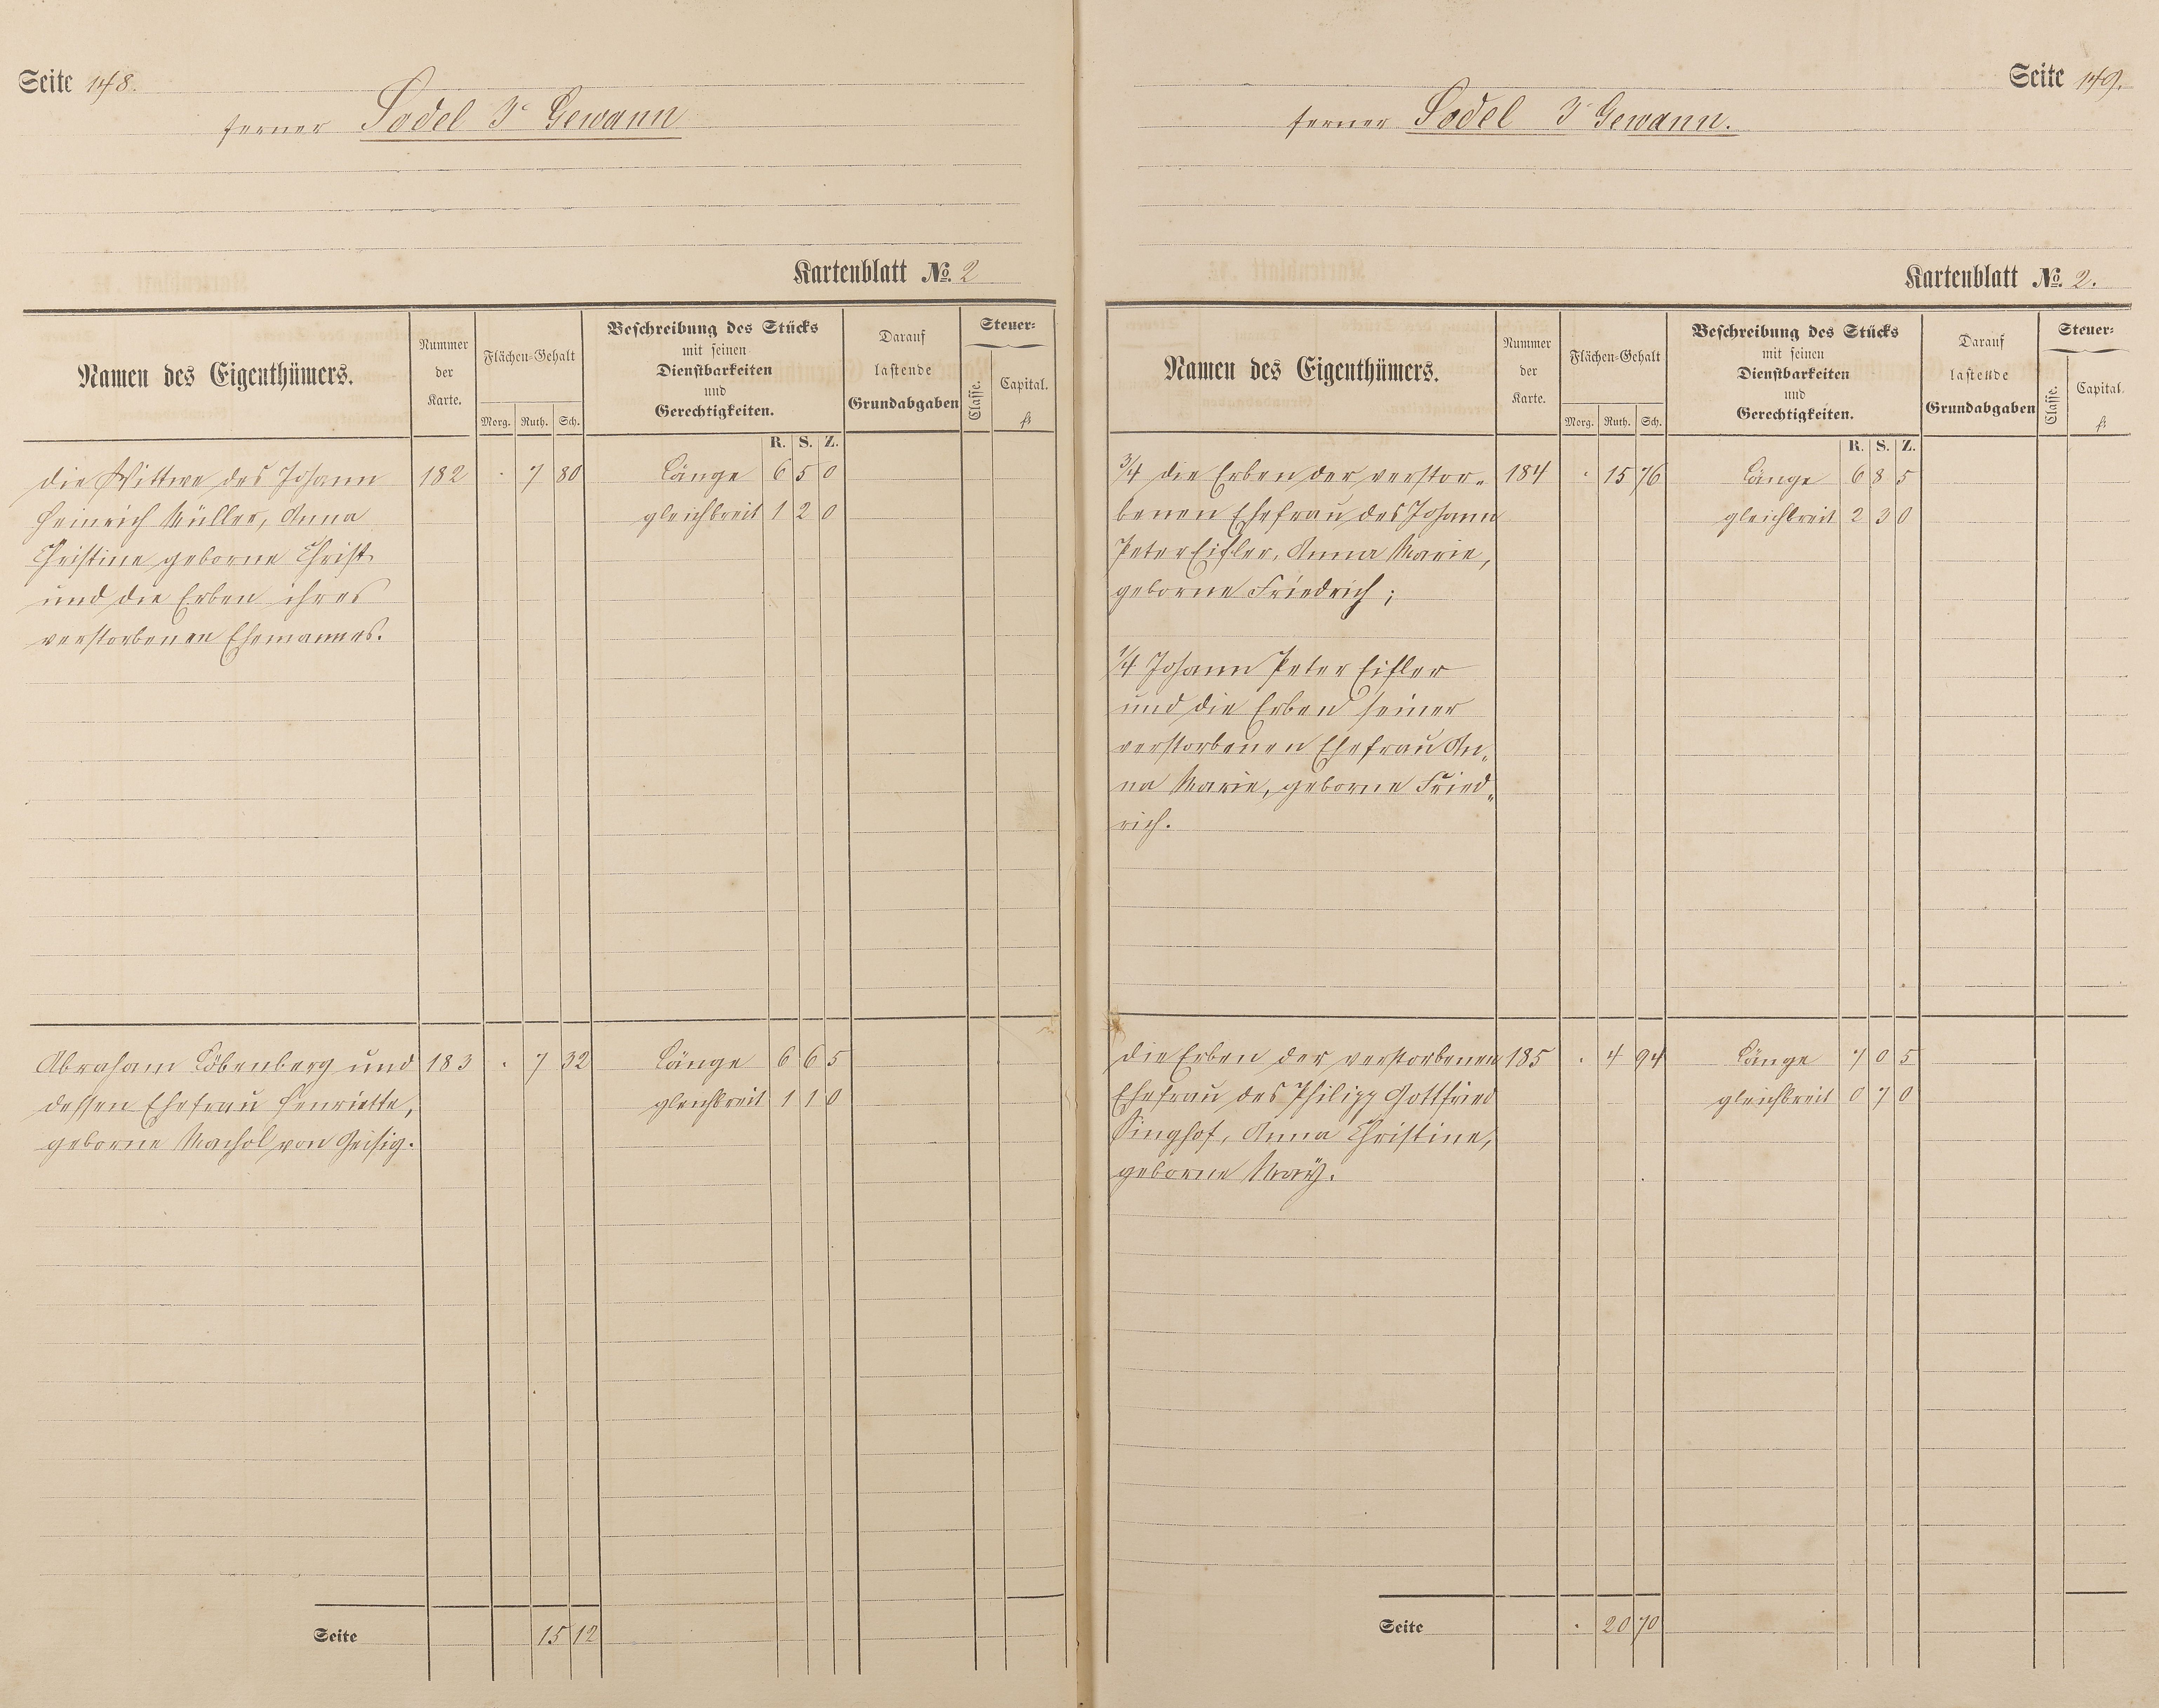 Seite 148.
ferner Sodel 3r Gewann
Kartenblatt No. 2
Namen des Eigenthümers.
Nummer der Karte.
Flächen-Gehalt
Morg. Ruth. Sch.
Beschreibung des Stücks
mit seinen
Dienstbarkeiten
und
Gerechtigkeiten.
Darauf
lastende
Grundabgaben
Steuer:
Classe.
Capital.
fl
R. S. Z.
die Wittwe des Johann 182 . 7 80 Länge 6 5 0
Heinrich Müller, Anna gleichbreit 1 2 0
Christine geborne Christ
und die Erben ihres
verstorbenen Ehemannes.
Abraham Löbenberg und 183 . 7 32 Länge 6 6 5
dessen Ehefrau Henriette, gleichbreit 1 1 0
geborne Machol von Geisig.
Seite 15 12
Seite 149.
ferner Sodel 3r Gewann.
Kartenblatt No. 2.
Namen des Eigenthümers.
Nummer der Karte.
Flächen-Gehalt
Morg. Ruth. Sch.
Beschreibung des Stücks
mit seinen
Dienstbarkeiten
und
Gerechtigkeiten.
Darauf
lastende
Grundabgaben
Steuer:
Classe.
Capital.
fl
R. S. Z.
3/4 die Erben der verstor- 184 . 15 76 Länge 6 8 5
benen Ehefrau des Johann gleichbreit 2 3 0
Peter Eisler, Anna Marie,
geborne Friedrich;
1/4 Johann Peter Eisler
und die Erben seiner
verstorbenen Ehefrau An-
na Marie, geborne Fried-
rich.
die Erben der verstorbenen 185 . 4 94 Länge 7 0 5
Ehefrau des Philipp Gottfried gleichbreit 0 7 0
Singhof, Anna Christine,
geborne Maÿ.
Seite . 20 70